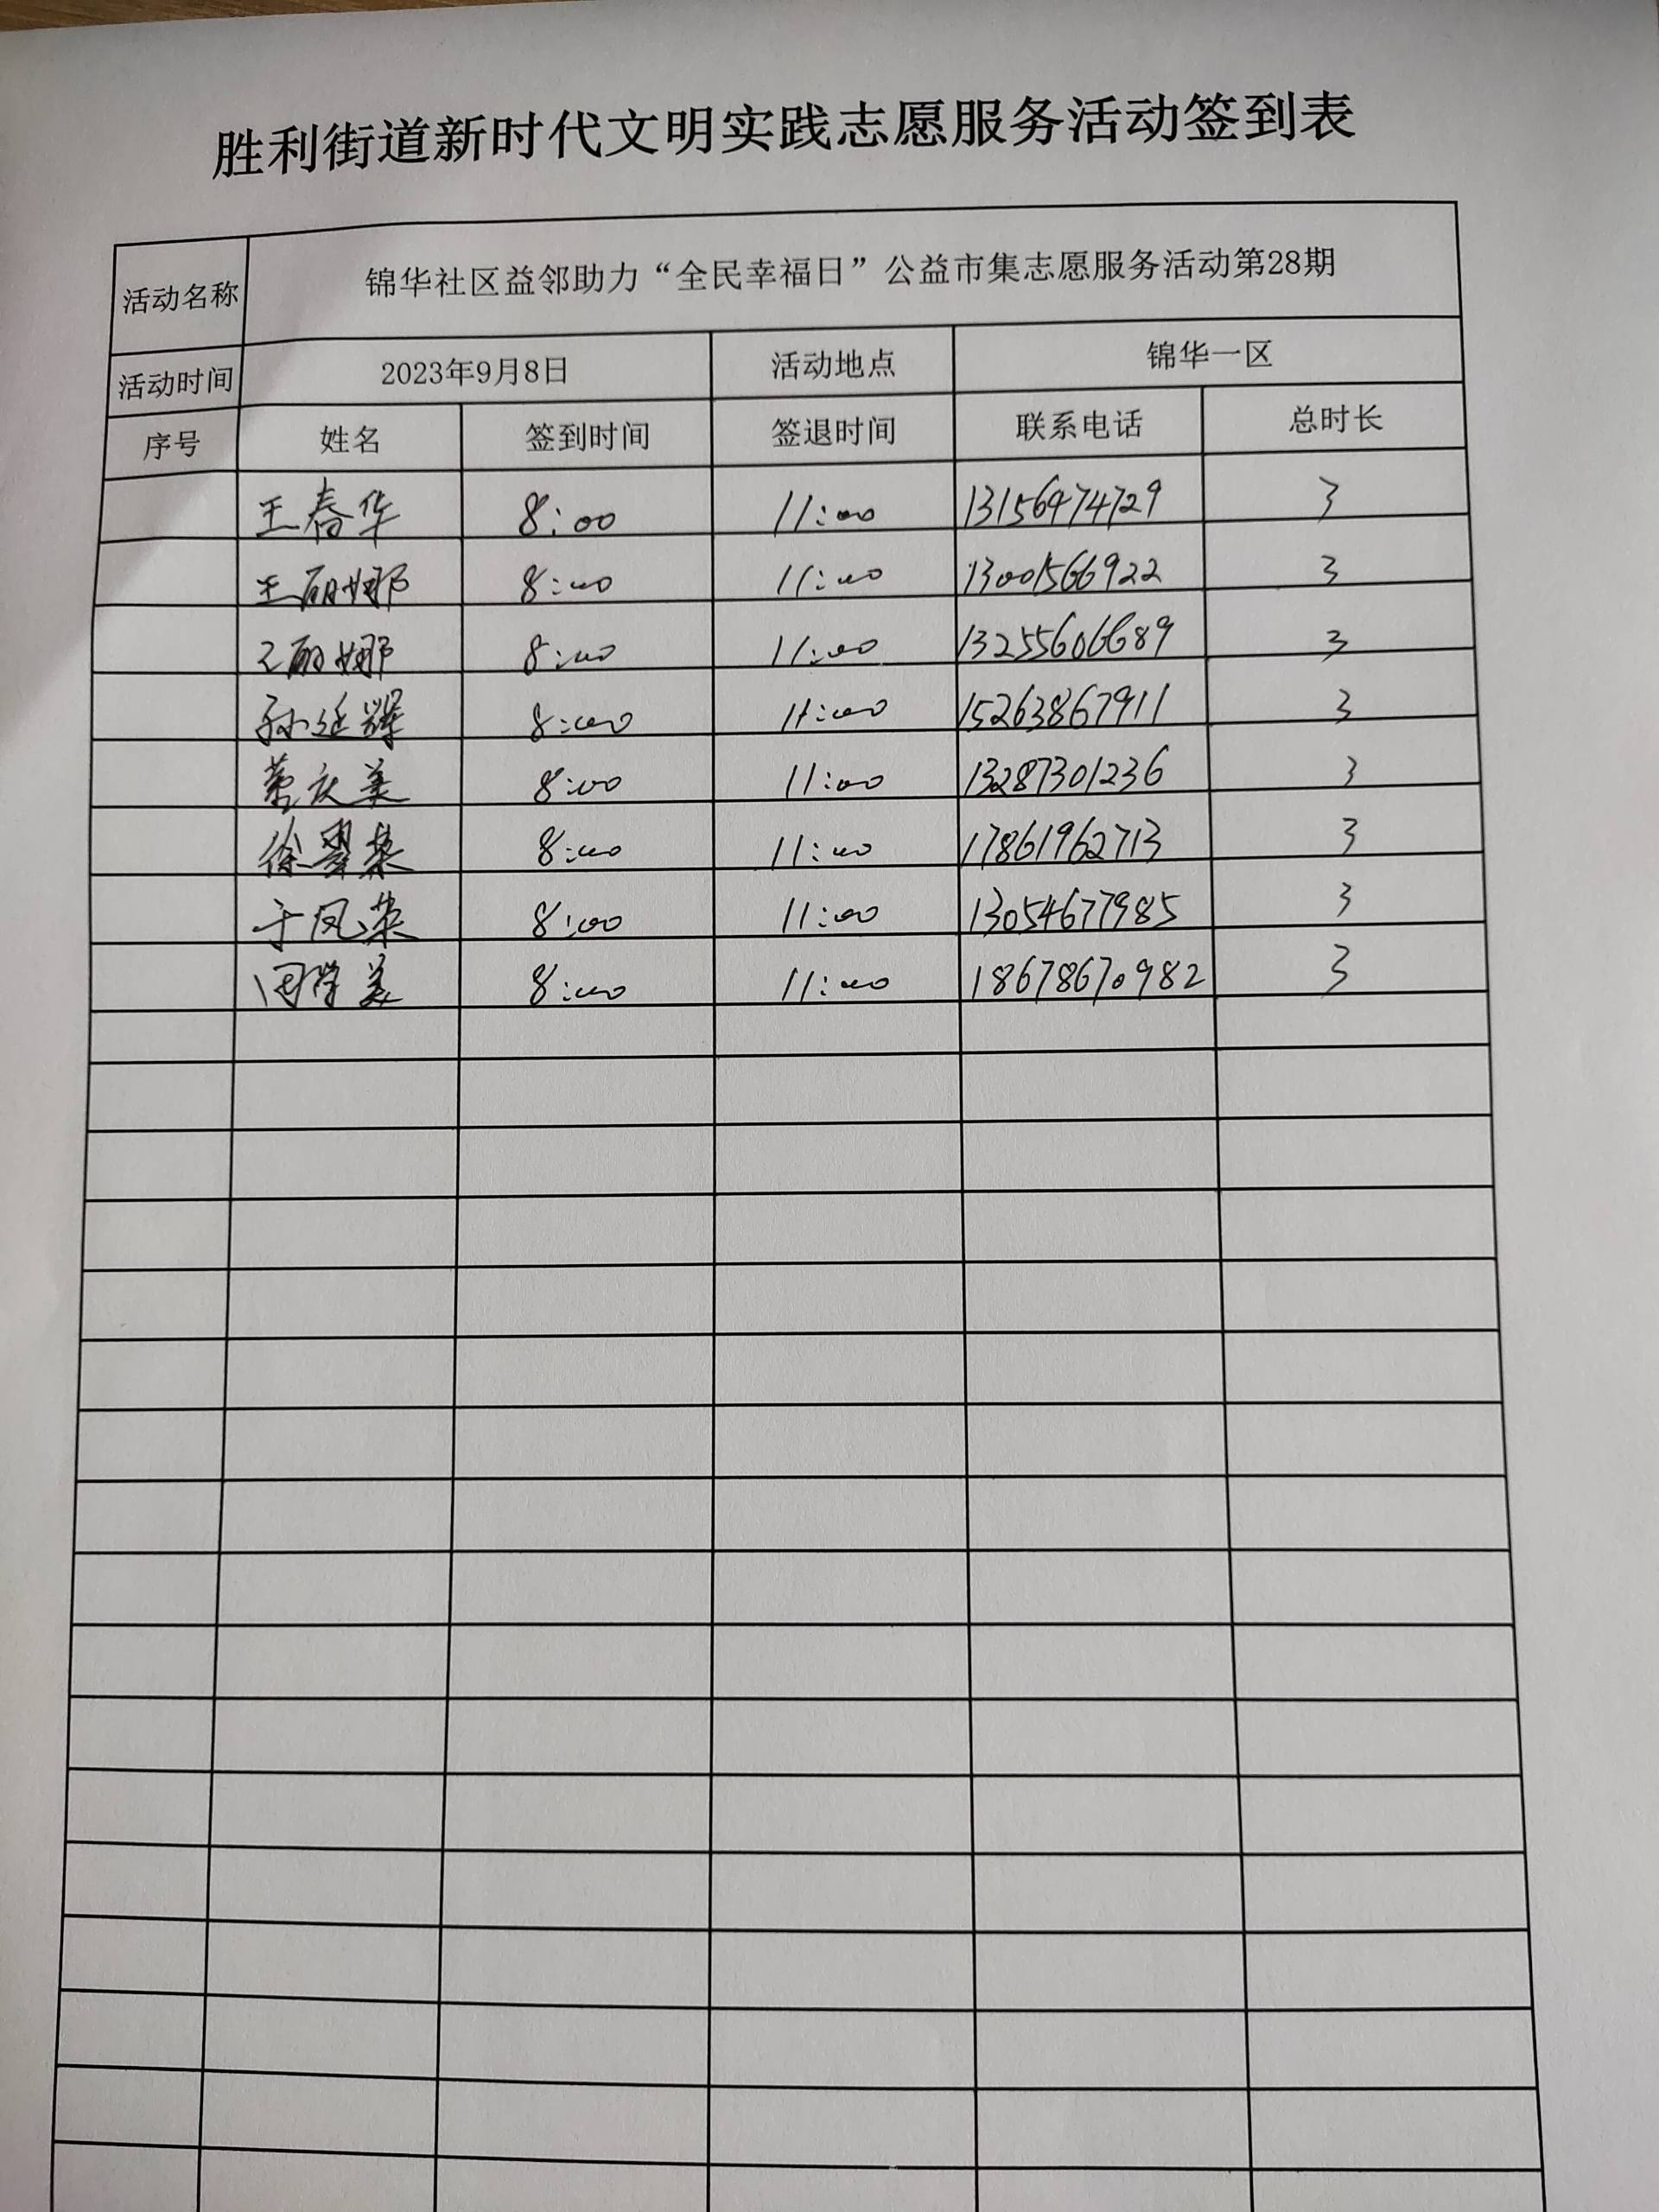 胜利街道新时代文明实践志愿服务活动签到表
活动名称 锦华社区益邻助力“全民幸福日”公益市集志愿服务活动第28期
活动时间 2023年9月8日 活动地点 锦华一区
序号 姓名 签到时间 签退时间 联系电话 总时长
王春华 8:00 11:00 13156474729 3
王丽娜 8:00 11:00 13001566922 3
王丽娜 8:00 11:00 13255606689 3
孙廷辉 8:00 11:00 15263867911 3
庆美 8:00 11:00 13287301236 3
徐翠荣 8:00 11:00 17861962713 3
于凤荣 8:00 11:00 13054677985 3
田学美 8:00 11:00 18678670982 3